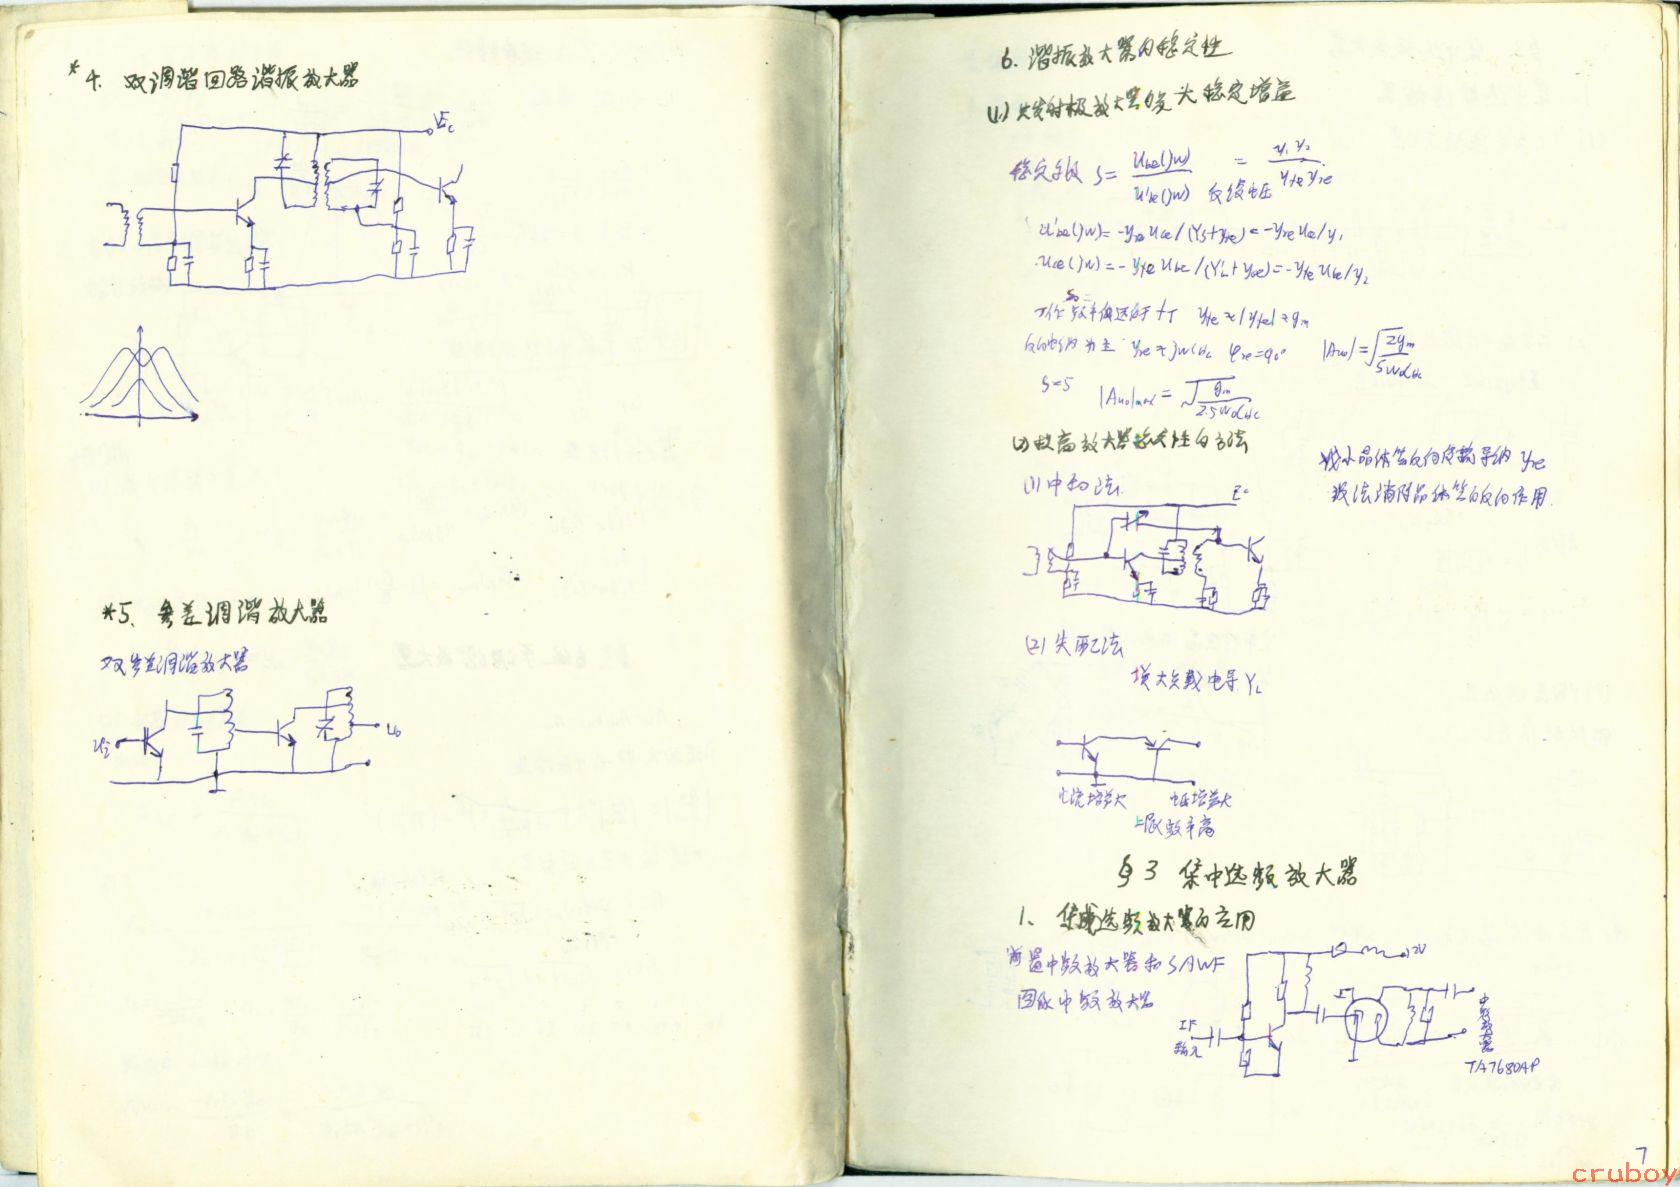 *4. 双调谐回路谐振放大器
Ec
*5. 参差调谐放大器
双参差调谐放大器
Ui
Uo
6. 谐振放大器的稳定性
(1) 共发射极放大器的最大稳定增益
稳定系数 S = Ube(jw) / U'be(jw) 反馈电压 = y1 y2 / yfe yre
U'be(jw) = -yre Uce/(Ys+yie) = -yre Uce/y1
Uce(jw) = -yfe Ube/(Y'L+yoe) = -yfe Ube/y2
工作频率偏远低于 fT yfe ≈ |yfe| ≈ gm
反向电纳为主 yre ≈ jwCb'c φre=90° |Auo| = √(2gm / SwoCb'c)
S=5 |Auo|max = √(gm / 2.5woCb'c)
(2) 提高放大器稳定性的方法
减小晶体管反向传输导纳 yre
设法消除晶体管的反向作用.
(1) 中和法.
Ec
(2) 失配法
增大负载电导 YL
电流增益大 电压增益大
上限频率高
§3 集中选频放大器
1. 集成选频放大器的应用
前置中频放大器和SAWF
图像中频放大器
12V
IF
输入
中频放大器
TA7680AP
7
cruboy